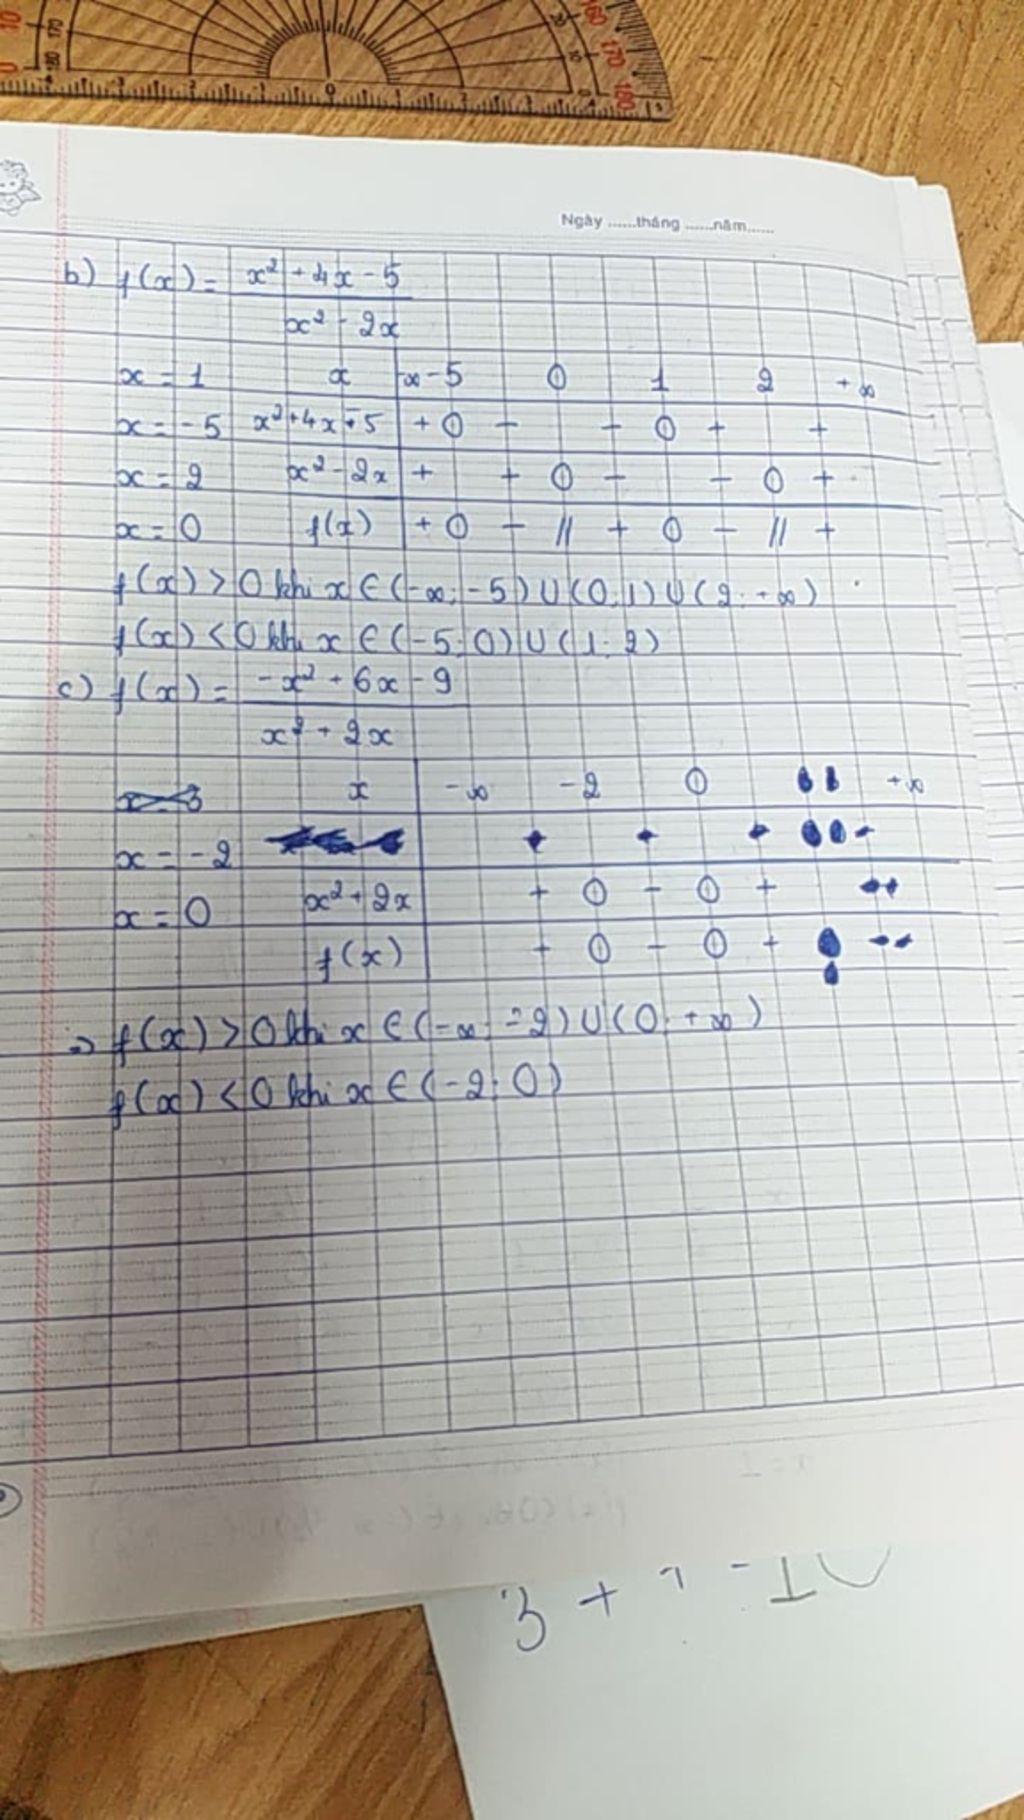 Ngày ......tháng ......năm......
b) f(x) = x² + 4x - 5
x² - 2x
x = 1 x -∞ -5 0 1 2 +∞
x = -5 x² + 4x - 5 + 0 - - 0 + +
x = 2 x² - 2x + + 0 - - 0 +
x = 0 f(x) + 0 - || + 0 - || +
f(x) > 0 khi x ∈ (-∞; -5) ∪ (0; 1) ∪ (2; +∞)
f(x) < 0 khi x ∈ (-5; 0) ∪ (1; 2)
c) f(x) = -x² + 6x - 9
x² + 2x
x -∞ -2 0 +∞
x = -2
x = 0 x² + 2x + 0 - 0 +
f(x) + 0 - 0 +
=> f(x) > 0 khi x ∈ (-∞; -2) ∪ (0; +∞)
f(x) < 0 khi x ∈ (-2; 0)